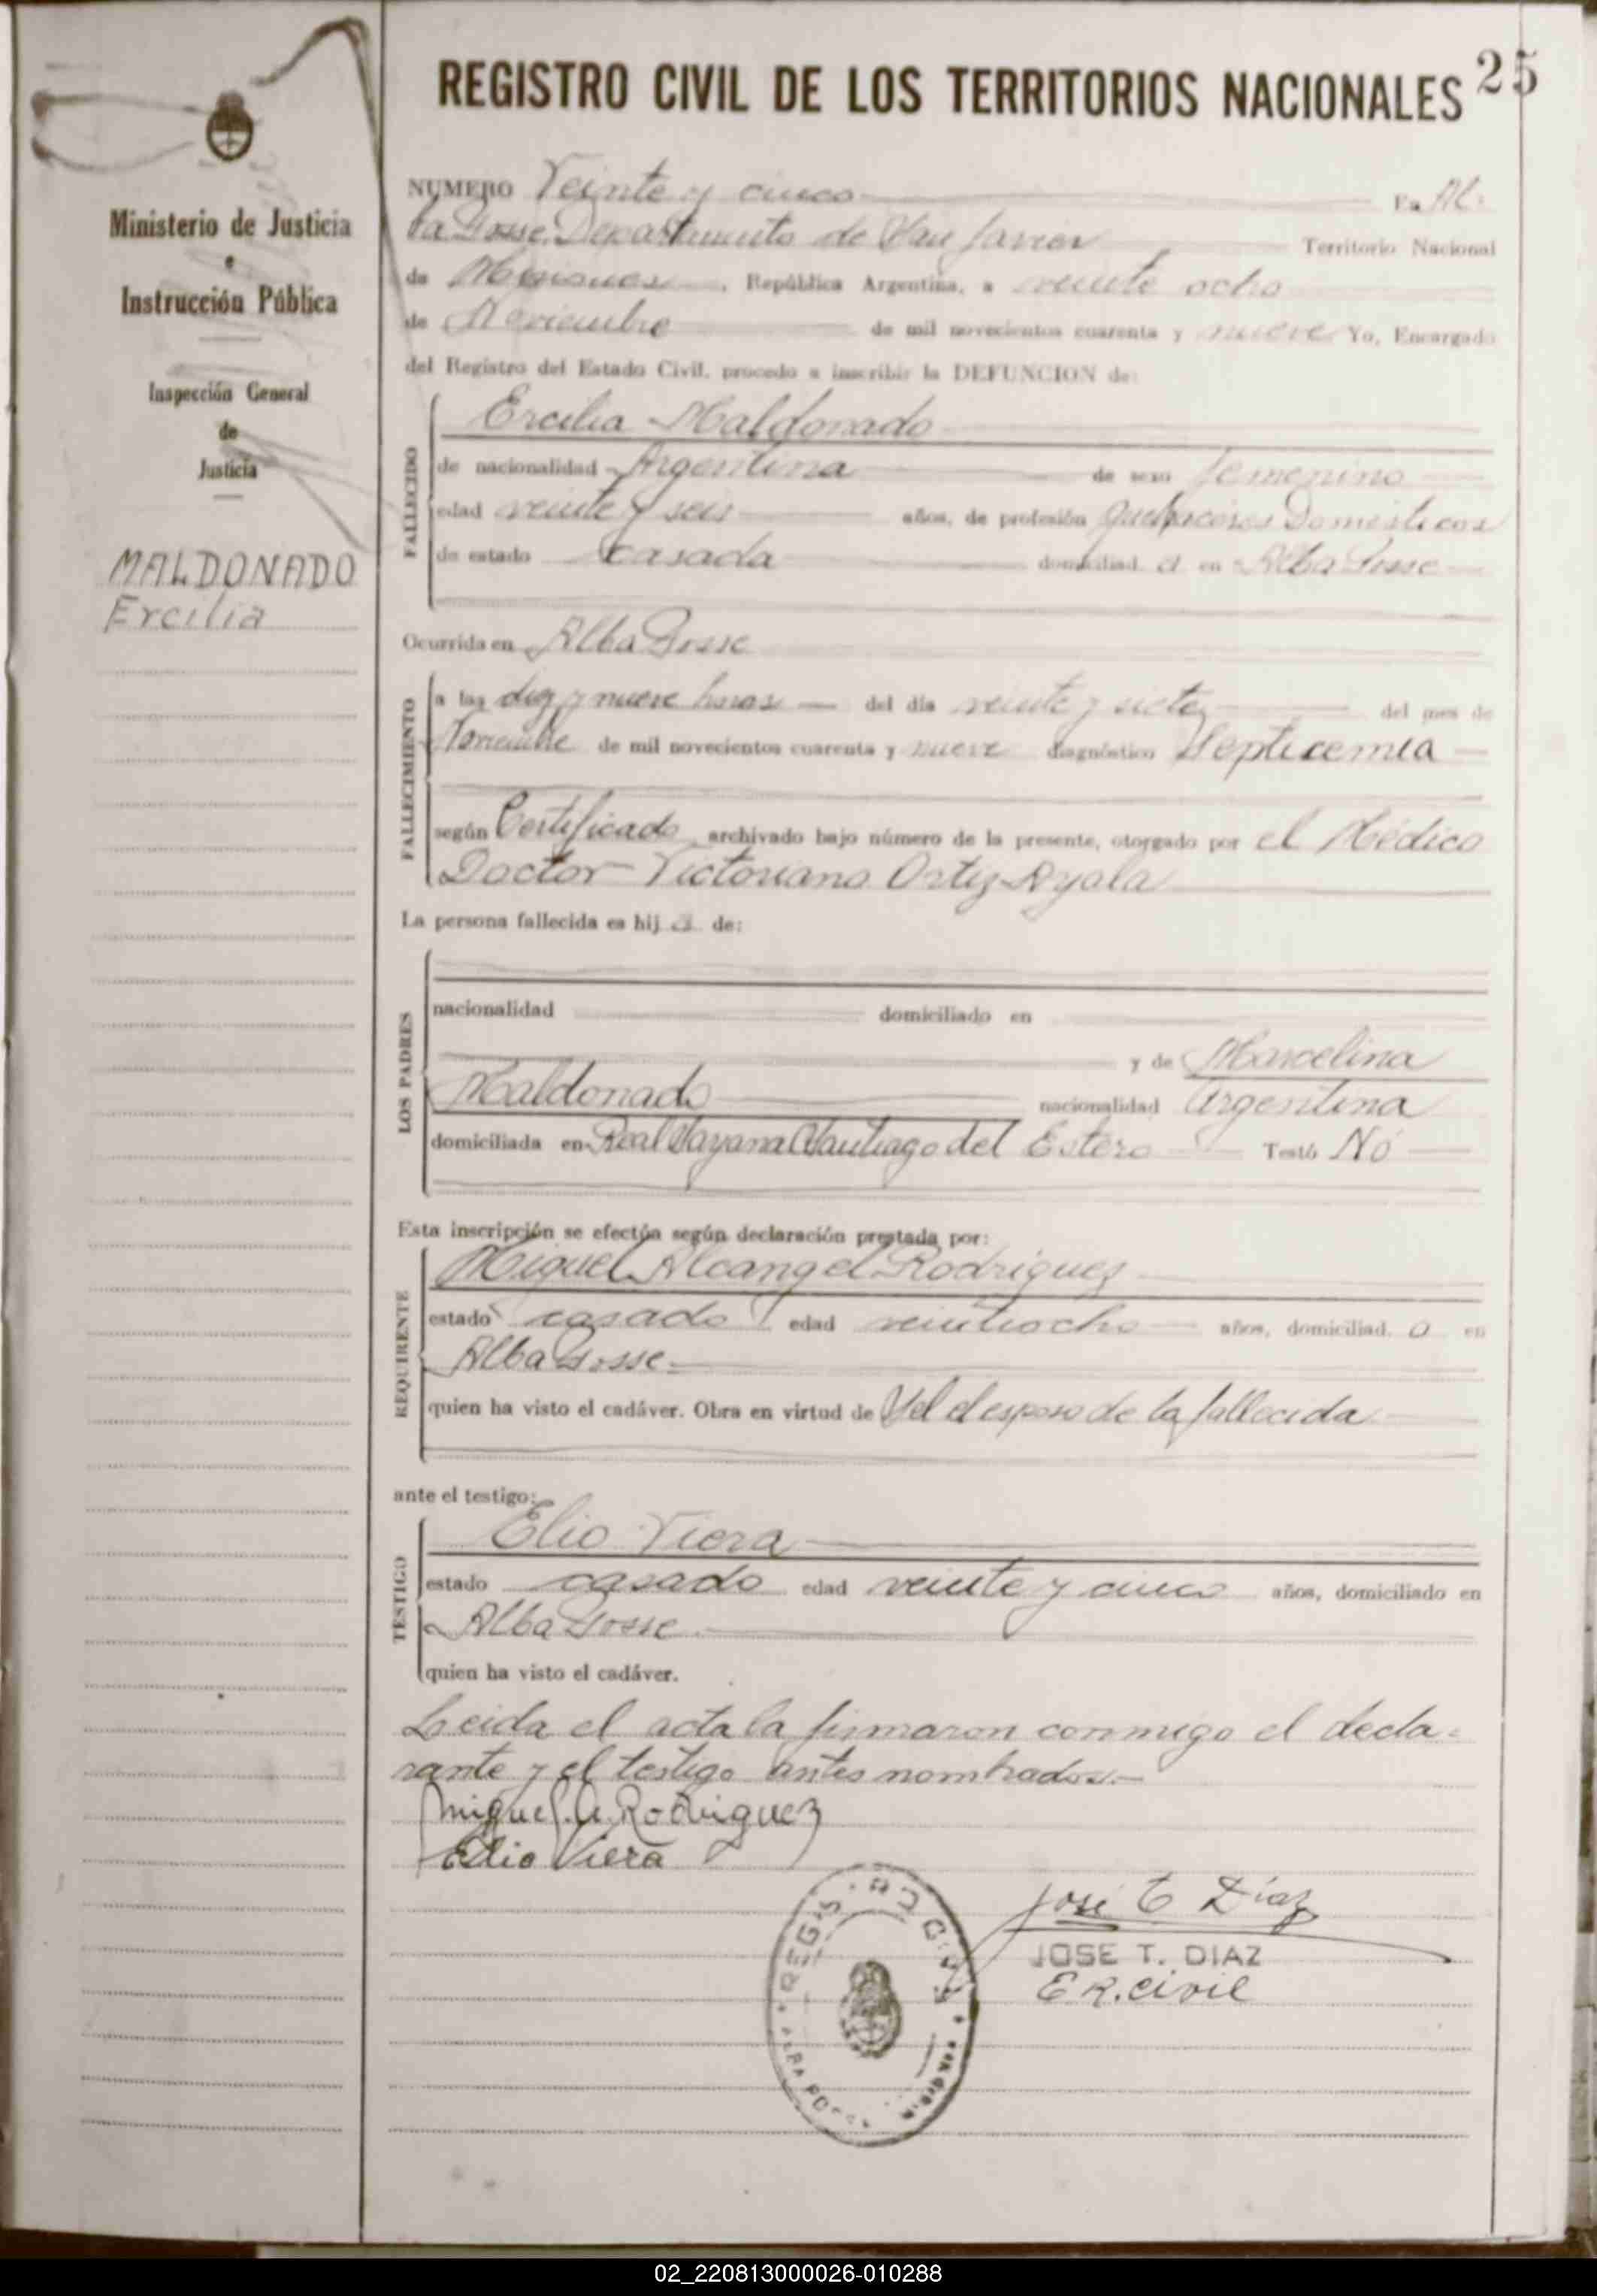 REGISTRO CIVIL DE LOS TERRITORIOS NACIONALES 25
Ministerio de Justicia
e
Instrucción Pública
Inspección General
de
Justicia
MALDONADO
Ercilia
NUMERO Veinte y cinco En Al-
ba Posse, Departamento de San Javier Territorio Nacional
de Misiones, República Argentina, a veinte ocho
de Noviembre de mil novecientos cuarenta y nueve Yo, Encargado
del Registro del Estado Civil, procedo a inscribir la DEFUNCION de:
FALLECIDO
Ercilia Maldonado
de nacionalidad Argentina de sexo femenino
edad veinte y seis años, de profesión Quehaceres Domesticos
de estado casada domiciliad a en Alba Posse
Ocurrida en Alba Posse
FALLECIMIENTO
a las diez y nueve horas del día veinte y siete del mes de
Noviembre de mil novecientos cuarenta y nueve diagnóstico Septicemia
según Certificado archivado bajo número de la presente, otorgado por el Médico
Doctor Victoriano Ortiz Ayala
La persona fallecida es hij a de:
LOS PADRES
nacionalidad domiciliado en
y de Marcelina
Maldonado nacionalidad argentina
domiciliada en Real Sayana Santiago del Estero Testó No
Esta inscripción se efectúa según declaración prestada por:
REQUIRENTE
Miguel Alcangel Rodriguez
estado casado edad veintiocho años, domiciliad o en
Alba Posse.
quien ha visto el cadáver. Obra en virtud de el esposo de la fallecida
ante el testigo:
TESTIGO
Elio Viera
estado casado edad veinte y cinco años, domiciliado en
Alba Posse.
quien ha visto el cadáver.
Leida el acta la firmaron conmigo el decla-
rante y el testigo antes nombrados.-
Miguel. A. Rodriguez
Elio Viera
José T Díaz
JOSE T. DIAZ
E R. Civil
REGISTRO CIVIL
ALBA POSSE
02_220813000026-010288